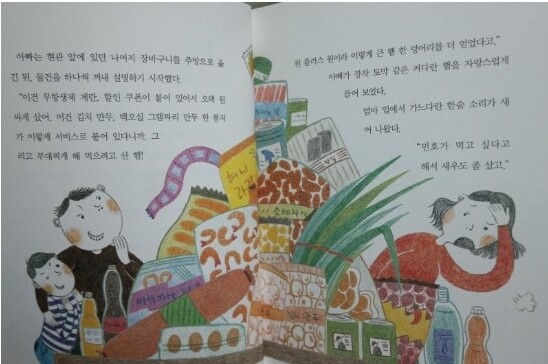 아빠는 현관 앞에 있던 나머지 장바구니를 주방으로 옮
긴 뒤, 물건을 하나씩 꺼내 설명하기 시작했다.
"이건 무항생제 계란, 할인 쿠폰이 붙어 있어서 오백 원
싸게 샀어. 이건 김치 만두, 백오십 그램짜리 만두 한 봉지
가 이렇게 서비스로 붙어 있다니까. 그
리고 부대찌개 해 먹으려고 산 햄!
원 플러스 원이라 이렇게 큰 햄 한 덩어리를 더 얻었다고."
아빠가 장작 토막 같은 커다란 햄을 자랑스럽게
들어 보였다.
엄마 입에서 가느다란 한숨 소리가 새
어 나왔다.
"민호가 먹고 싶다고
해서 새우도 좀 샀고."
허니